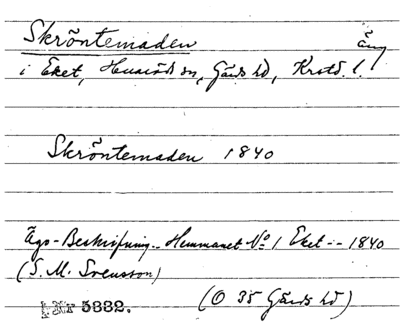 Skröntemaden Äng
i Eket, Huaröds sn, Gärds hd, Krstd. l.
Skröntemaden 1840
Ägo-Beskrifning.. Hemmanet No 1 Eket -- 1840
(S. M. Svensson)
5332. (O 35 Gärds hd)